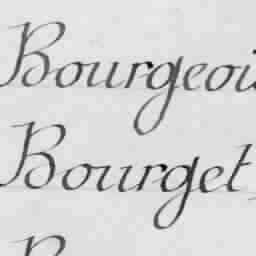 Bourgeoi
Bourget